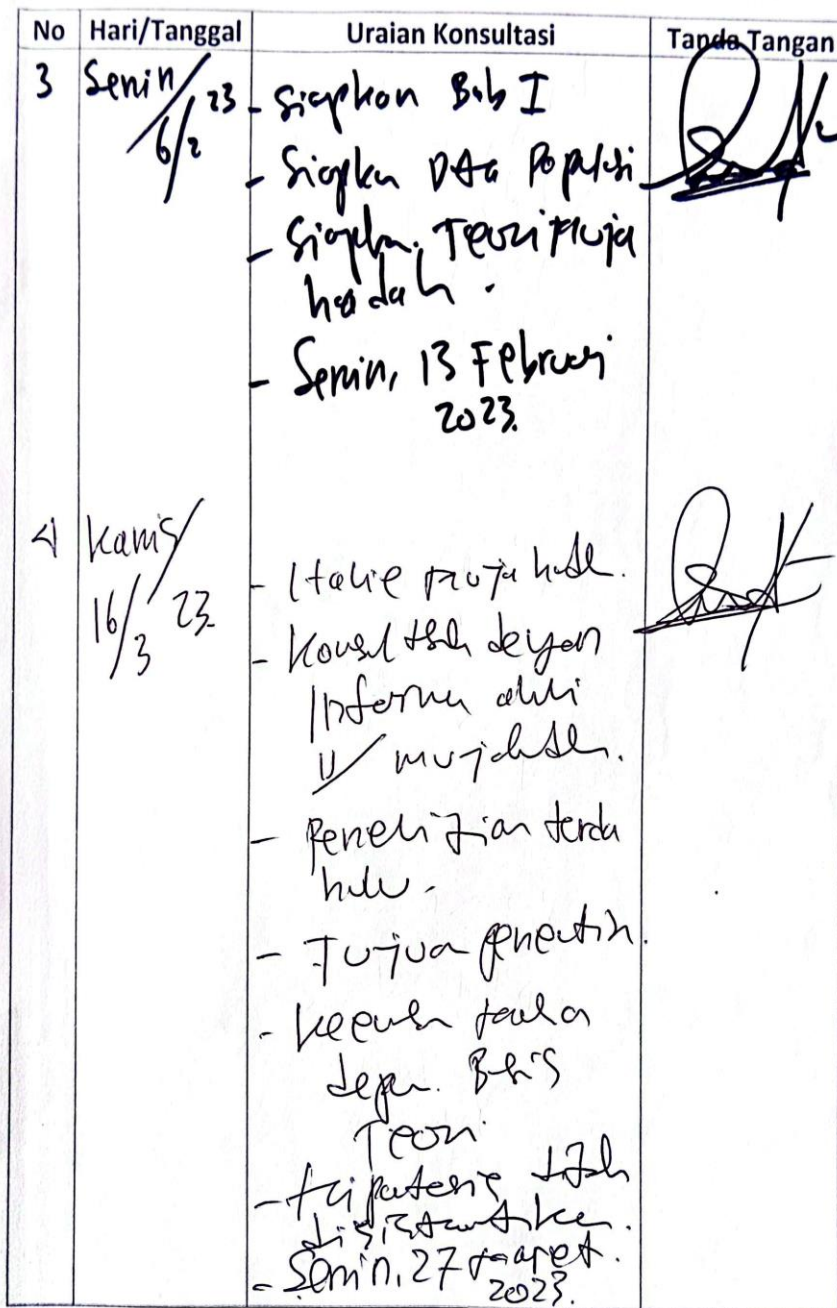 No Hari/Tanggal Uraian Konsultasi Tanda Tangan
3 Senin/ 6/2 23
- Siapkan Bab I
- Siapkan Data Populasi
- Siapkan Teori Muja
hadah.
- Senin, 13 Februari
2023.
4 Kamis/ 16/3 23.
- Italic mujahadah.
- Konsultasi dengan
Informan ahli
u/ mujahadah.
- Penelitian terda
hulu.
- Tujuan penelitian.
- Teori
- Hipotesis tidak
- Senin, 27 Maret.
2023.